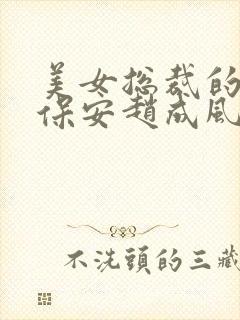 美女总裁的
保安趙成風
不洗頭的三藏